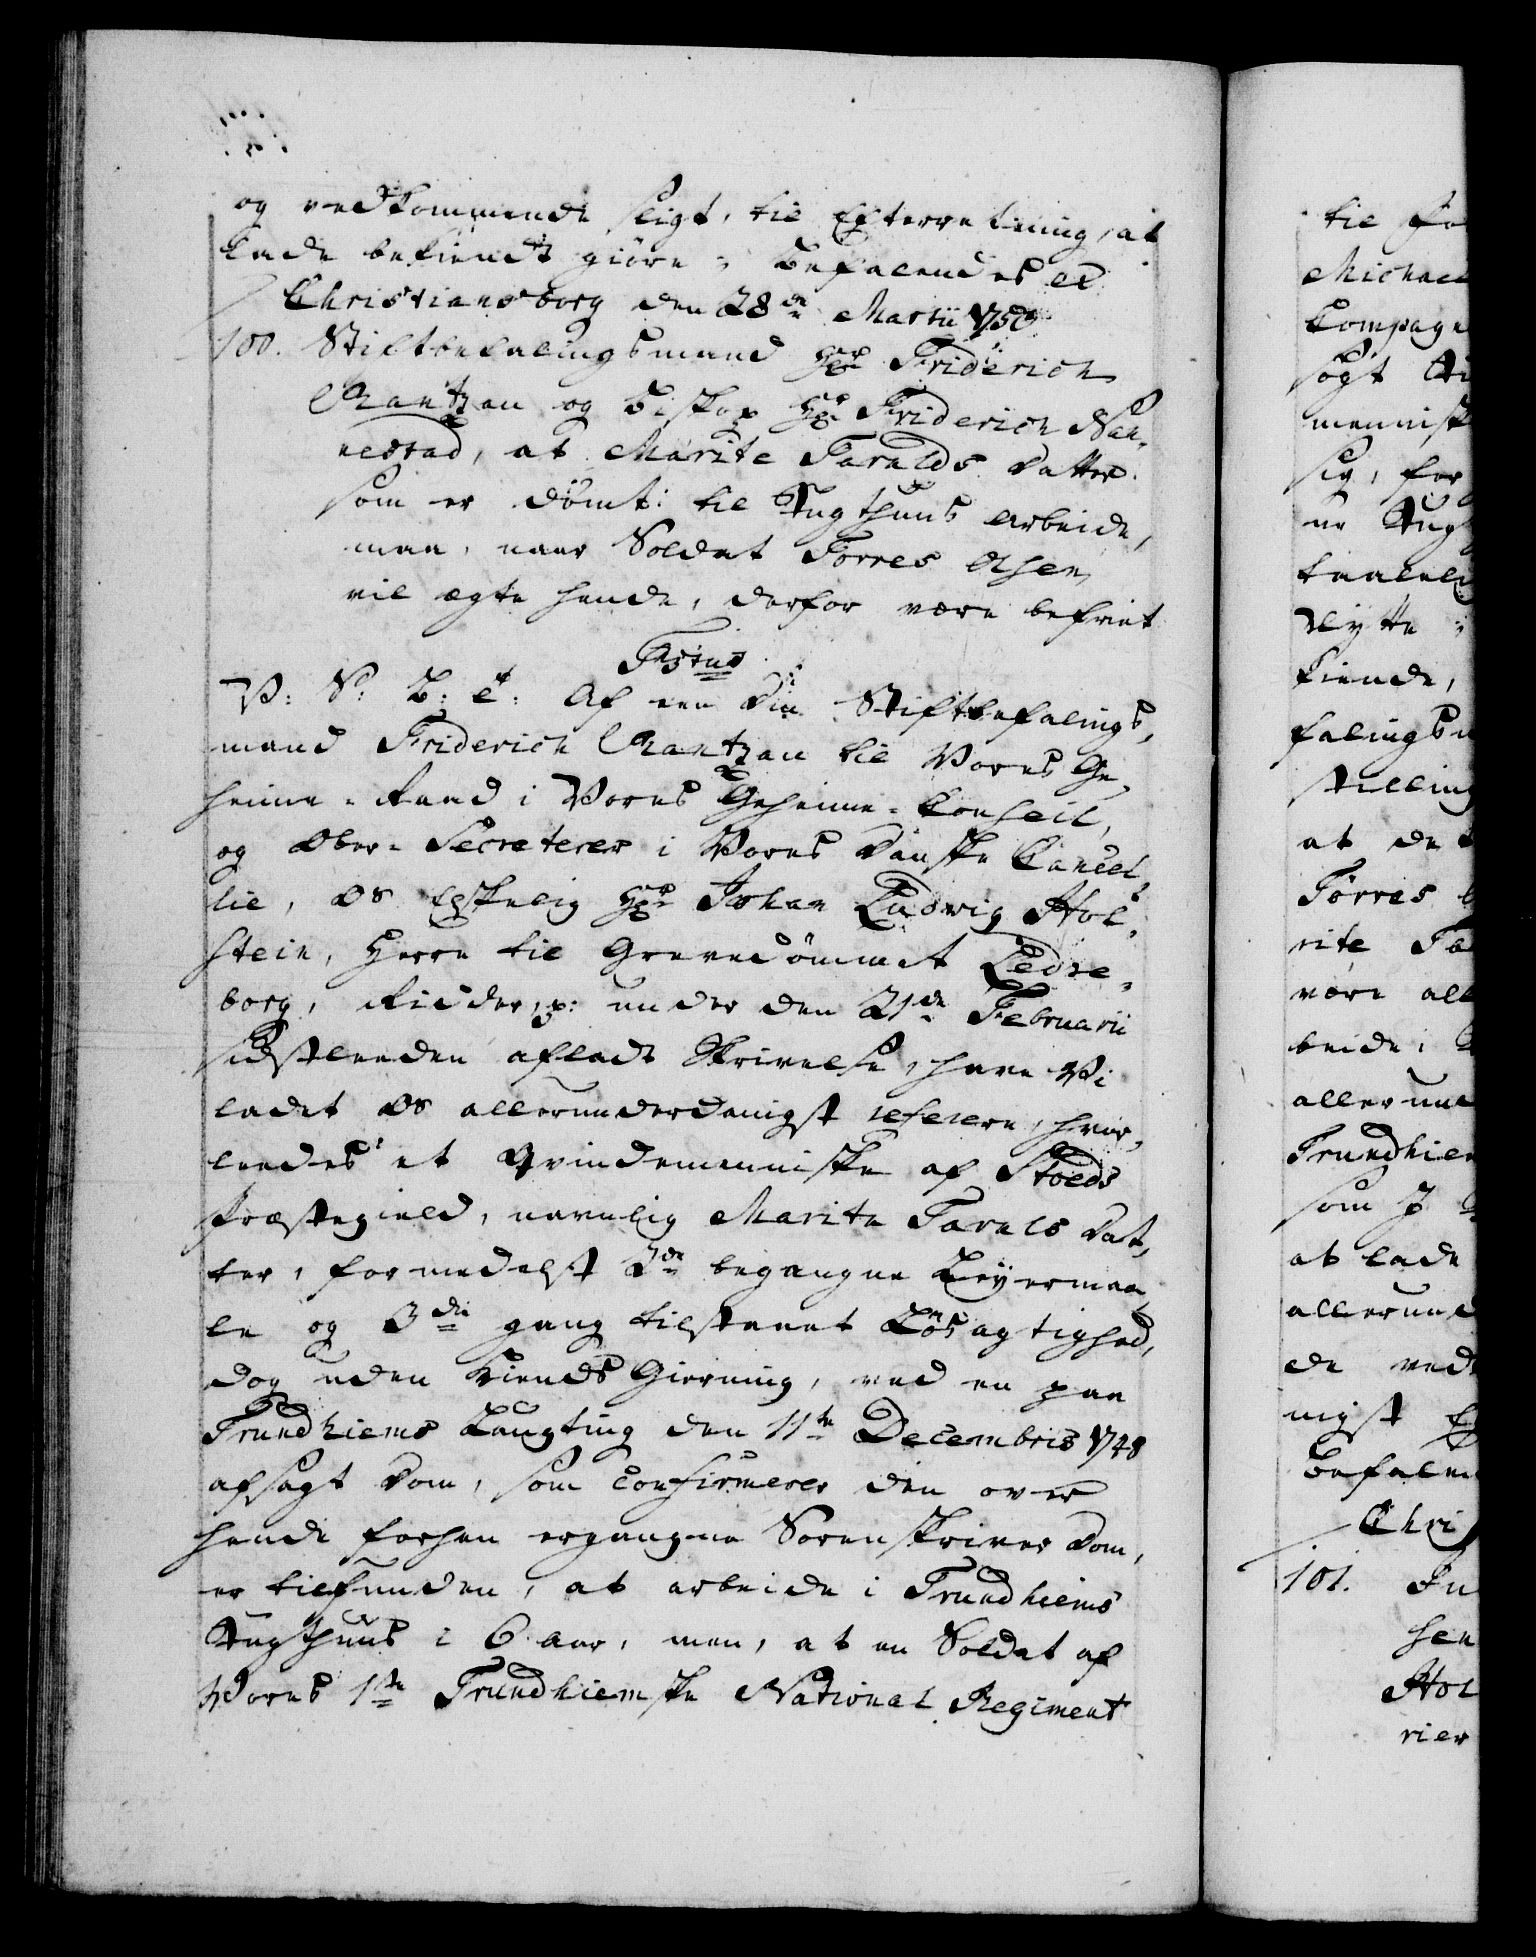 og vedkommende sligt, til Efterretning, at
lade bekiendt giöre; Befalendes etc
Christiansborg den 28de Martii 1750
100. Stiftbefalingsmand Hr Friderich
Rantzau og Biskop Hr Friderich Nan-
nestad, at Marite Taralds Datter
som er dömt til Tugthuus Arbeide,
maa, naar Soldat Torres Olsen
vil ægte hende, derfor være befriet
F5tus
V: S: Z: E: Af een din Stiftbefalings,
mand Friderich Rantzau til Vores Ge,
heime-Raad i Vores Geheime-Conseil,
og Ober-Secreterer i Vores Danske Cancel,
lie, Os Elskelig Hr Johan Ludvig Hol-
stein, Herre til Grevedömmet Ledre-
borg, Ridder, p: under den 21de Februarii
sidstleeden afladt Skrivelse, have Vi
ladet Os allerunderdanigst referere, hvor,
leedes et Qvindemenniske af Stoeds
Præstegield, navnlig Marite Taralds Dat,
ter, formedelst 2de begangne Leyermaa,
le og 3die gang tilstaaet Lösagtighed,
dog uden Kiends Gierning, ved en paa
Trundhiems Laugting den 11te Decembris 1748
afsagt Dom, som confirmerer den over
hende forhen ergangne Sorenskriver Dom,
er tilfunden, at arbeide i Trundhiems
Tugthuus i 6 aar, men, at en Soldat af
Vores 1ste Trundhiemske National Regiment
til fo
Michael
Compagn
sögt
mennisk
sig, for
ur Tug
taalel
Kiende,
falings
stilling
at det
Torres
rite Ta
være all
beide:
allerund
Trundhiem
som I
at lade
allerund
de ved
nigst
Befalen
Chri
101.
sen
Hol
rier